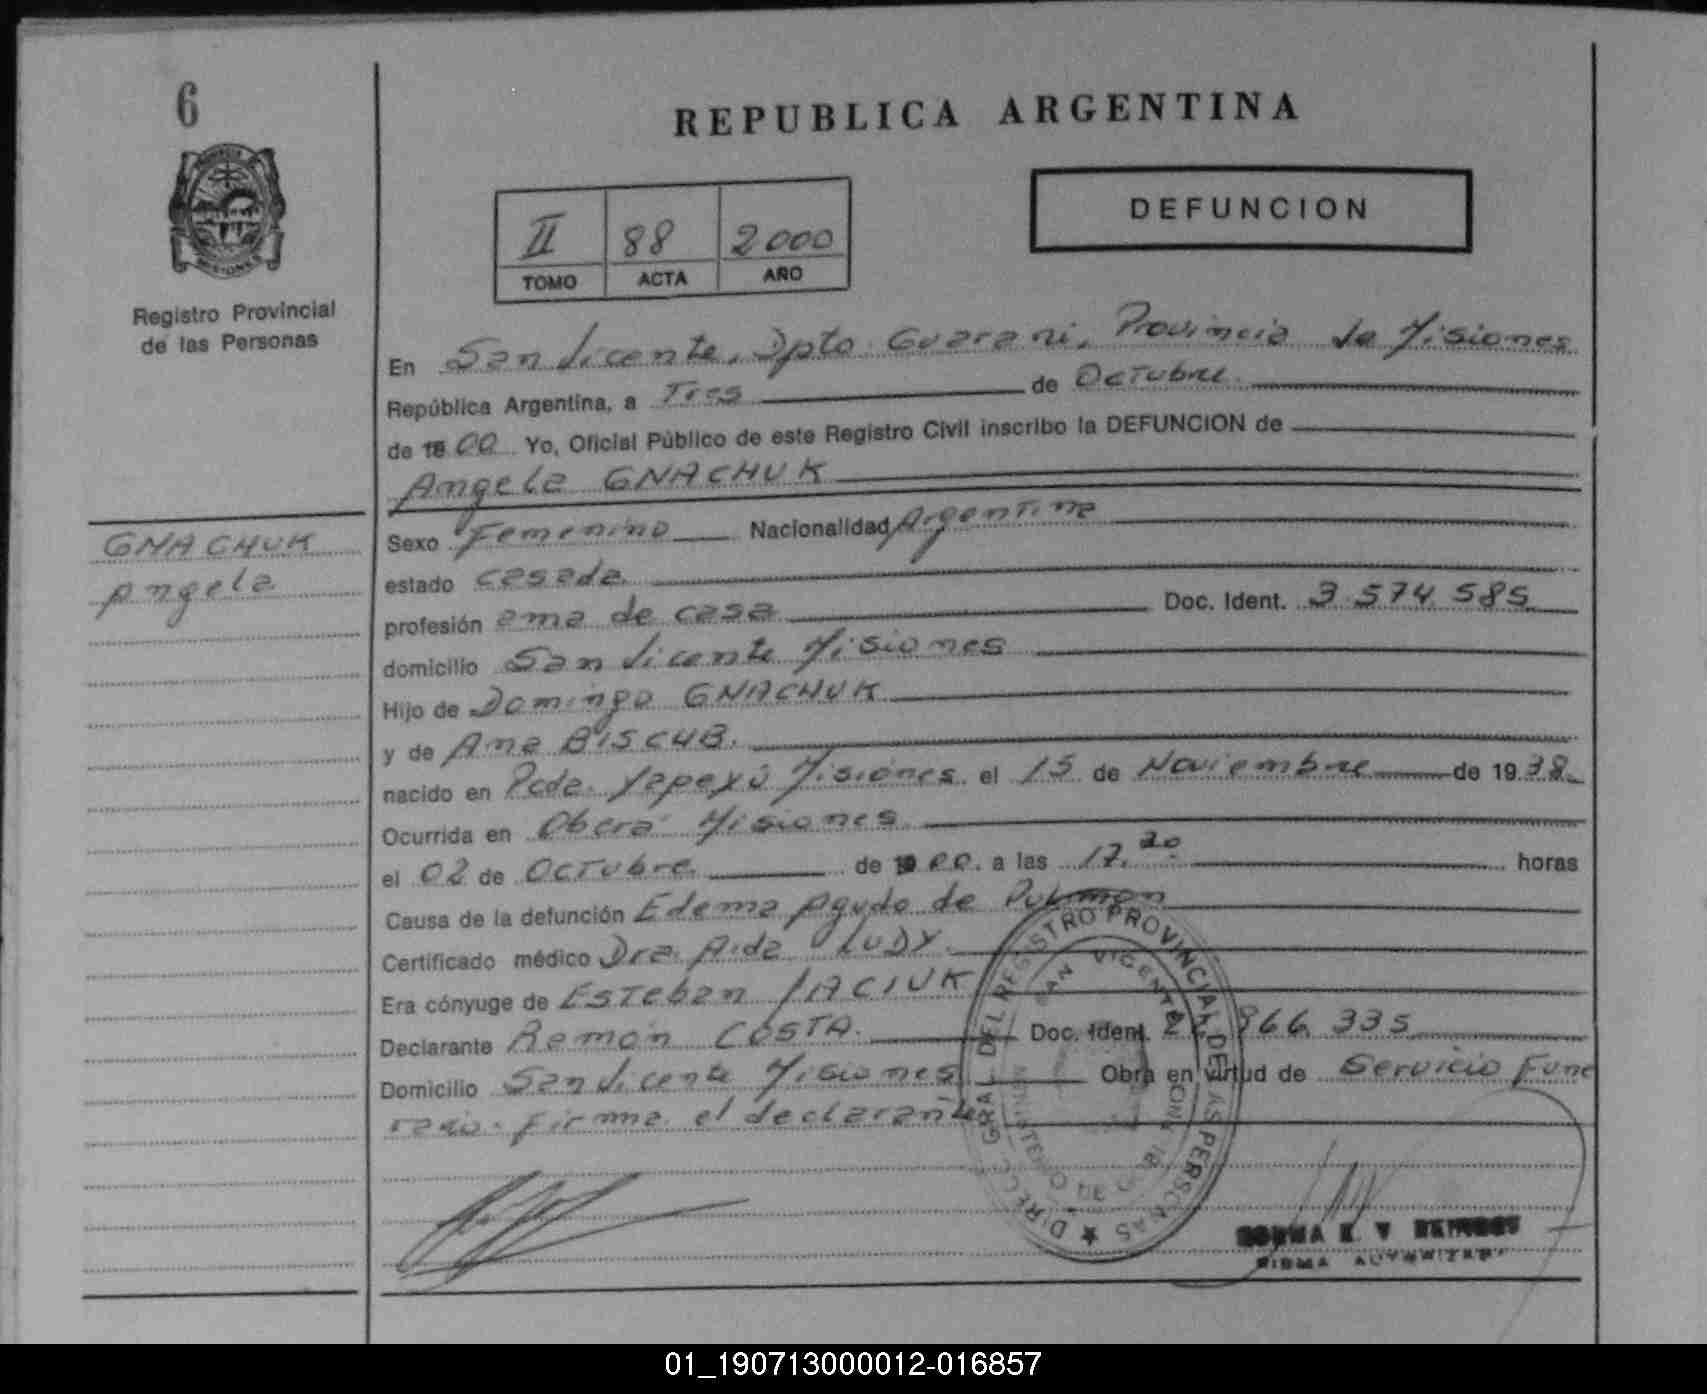 6
REPUBLICA ARGENTINA
DEFUNCION
II 88 2000
TOMO ACTA AÑO
PROVINCIA DE MISIONES
Registro Provincial
de las Personas
En San Vicente, Dpto Guarani, Provincia de Misiones
República Argentina, a Tres de Octubre
de 19 00 Yo, Oficial Público de este Registro Civil inscribo la DEFUNCION de
Angela GNACHUK
GNACHUK
Angela
Sexo Femenino Nacionalidad Argentina
estado casada
profesión ama de casa Doc. Ident. 3.574.585
domicilio San Vicente Misiones
Hijo de Domingo GNACHUK
y de Ana BISCUB.
nacido en Pcda. Yapeyú Misiones el 15 de Noviembre de 1938
Ocurrida en Oberá Misiones
el 02 de Octubre de 19 00. a las 17. horas
Causa de la defunción Edema Agudo de Pulmón
Certificado médico Dra. Aida LUDY.
Era cónyuge de Esteban IACIUK
Declarante Ramón COSTA. Doc. Ident. 966.335
Domicilio San Vicente Misiones Obra en virtud de Servicio Fune
rario. firma el declarante
DIREC. GRAL. DEL REGISTRO PROVINCIAL DE LAS PERSONAS
SAN VICENTE
MINISTERIO DE
NORMA
FIRMA AUTORIZADA
01_190713000012-016857